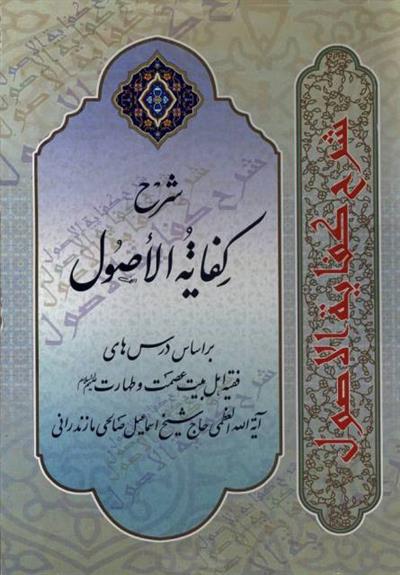 شرح
كفاية الأصول
براساس درس های
فقیه اهل بیت عصمت و طهارت علیهم‌السلام
آیة الله العظمی حاج شیخ اسماعیل صالحی مازندرانی
شرح كفاية الاصول